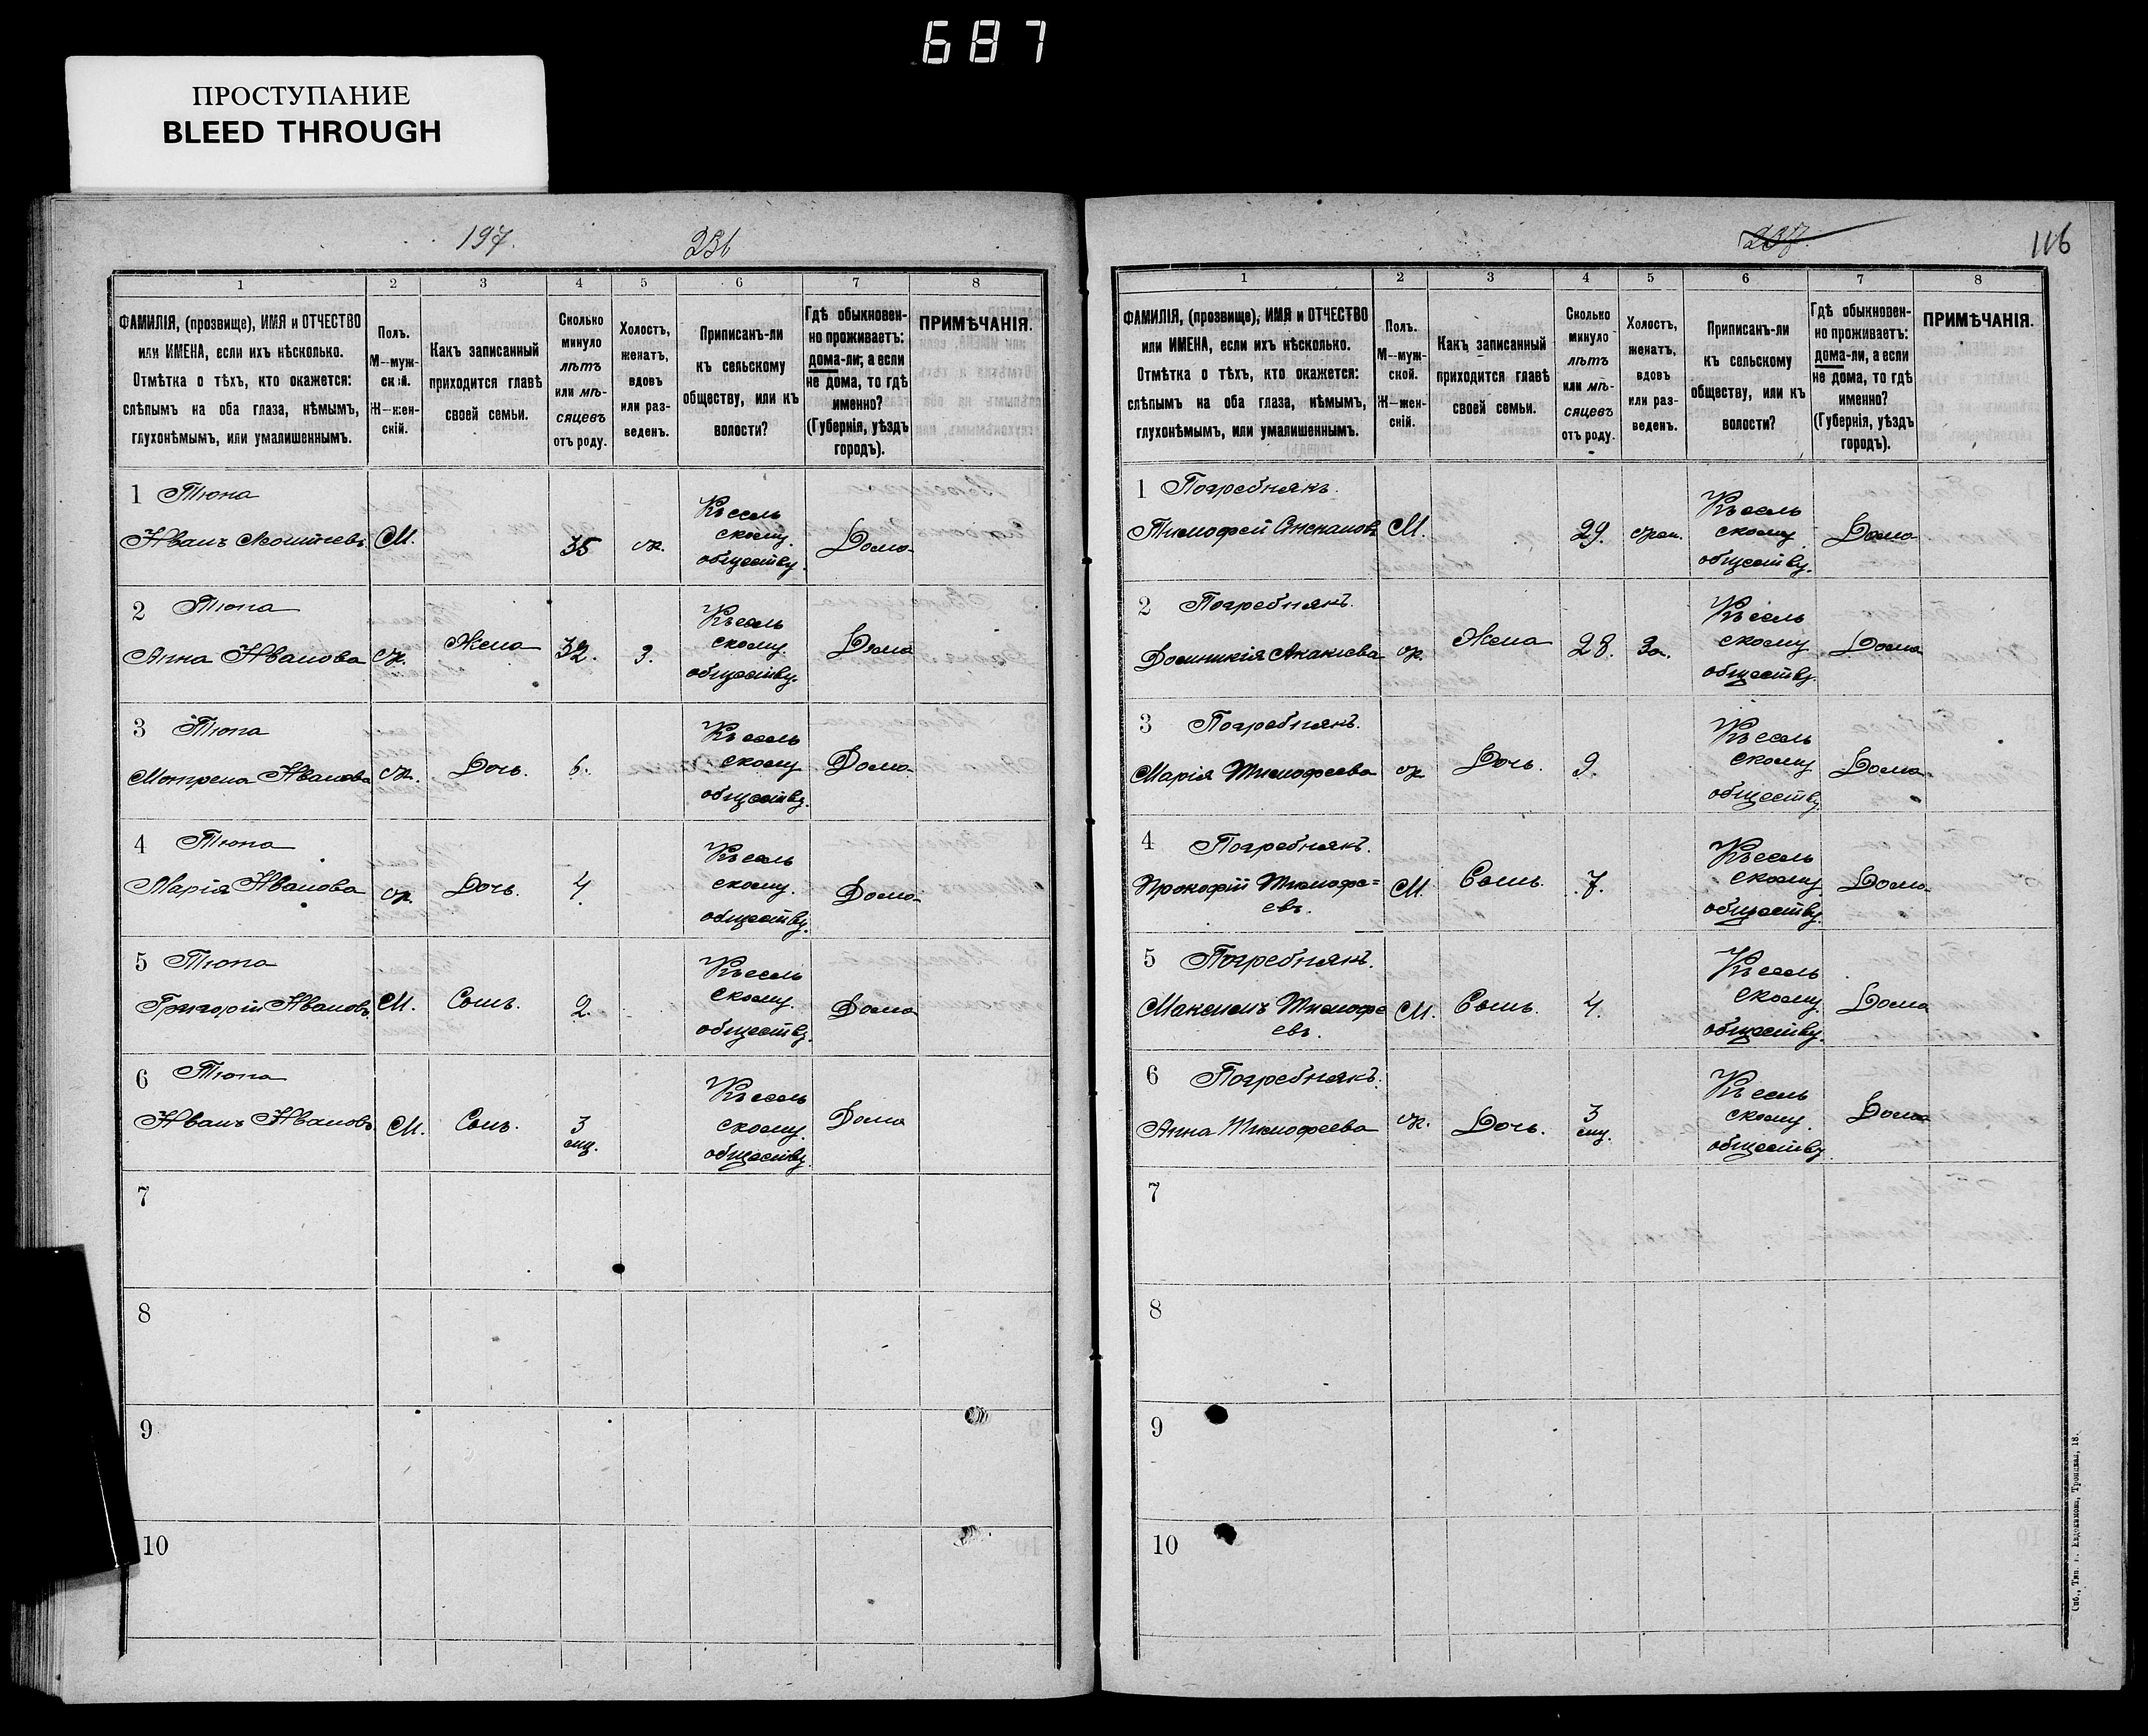 687
ПРОСТУПАНИЕ
BLEED THROUGH
197.
236
1 2 3 4 5 6 7 8
ФАМИЛІЯ, (прозвище), ИМЯ и ОТЧЕСТВО или ИМЕНА, если ихъ нѣсколько. Отмѣтка о тѣхъ, кто окажется: слѣпымъ на оба глаза, нѣмымъ, глухонѣмымъ, или умалишеннымъ.
Полъ. М—мужской. Ж—женскій.
Какъ записанный приходится главѣ своей семьи.
Сколько минуло лѣтъ или мѣсяцевъ отъ роду.
Холостъ, женатъ, вдовъ или разведенъ.
Приписанъ-ли къ сельскому обществу, или къ волости?
Гдѣ обыкновенно проживаетъ: дома-ли, а если не дома, то гдѣ именно? (Губернія, уѣздъ городъ).
ПРИМѢЧАНІЯ.
1 Тюпа
Иванъ М. 35 ж. Къ сельскому обществу. Дома
2 Тюпа
Анна Иванова ж. Жена 32. З. Къ сельскому обществу. Дома
3 Тюпа
Мотрена Иванова ж. Дочь. 6. Къ сельскому обществу. Дома
4 Тюпа
Марія Иванова ж. Дочь. 4. Къ сельскому обществу. Дома
5 Тюпа
Григорій Ивановъ М. Сынъ. 2. Къ сельскому обществу. Дома
6 Тюпа
Иванъ Ивановъ М. Сынъ. 3 мц. Къ сельскому обществу. Дома
7
8
9
10
237.
116
1 2 3 4 5 6 7 8
ФАМИЛІЯ, (прозвище), ИМЯ и ОТЧЕСТВО или ИМЕНА, если ихъ нѣсколько. Отмѣтка о тѣхъ, кто окажется: слѣпымъ на оба глаза, нѣмымъ, глухонѣмымъ, или умалишеннымъ.
Полъ. М—мужской. Ж—женскій.
Какъ записанный приходится главѣ своей семьи.
Сколько минуло лѣтъ или мѣсяцевъ отъ роду.
Холостъ, женатъ, вдовъ или разведенъ.
Приписанъ-ли къ сельскому обществу, или къ волости?
Гдѣ обыкновенно проживаетъ: дома-ли, а если не дома, то гдѣ именно? (Губернія, уѣздъ городъ).
ПРИМѢЧАНІЯ.
1 Погребнякъ.
Тимофей Степановъ М. 29. жен. Къ сельскому обществу. Дома
2 Погребнякъ.
Домникія Акакіева ж. Жена 28. За. Къ сельскому обществу. Дома
3 Погребнякъ.
Марія Тимофеева ж Дочь. 9. Къ сельскому обществу Дома
4 Погребнякъ.
Прокофій Тимофе=евъ. М. Сынъ. 7. Къ сельскому обществу. Дома
5 Погребнякъ.
Максимъ Тимофеевъ. М. Сынъ. 4. Къ сельскому обществу. Дома
6 Погребнякъ.
Анна Тимофеева ж. Дочь. 3 мц. Къ сельскому обществу. Дома
7
8
9
10
Спб., Тип. Евдокимова, Троицкая, 18.